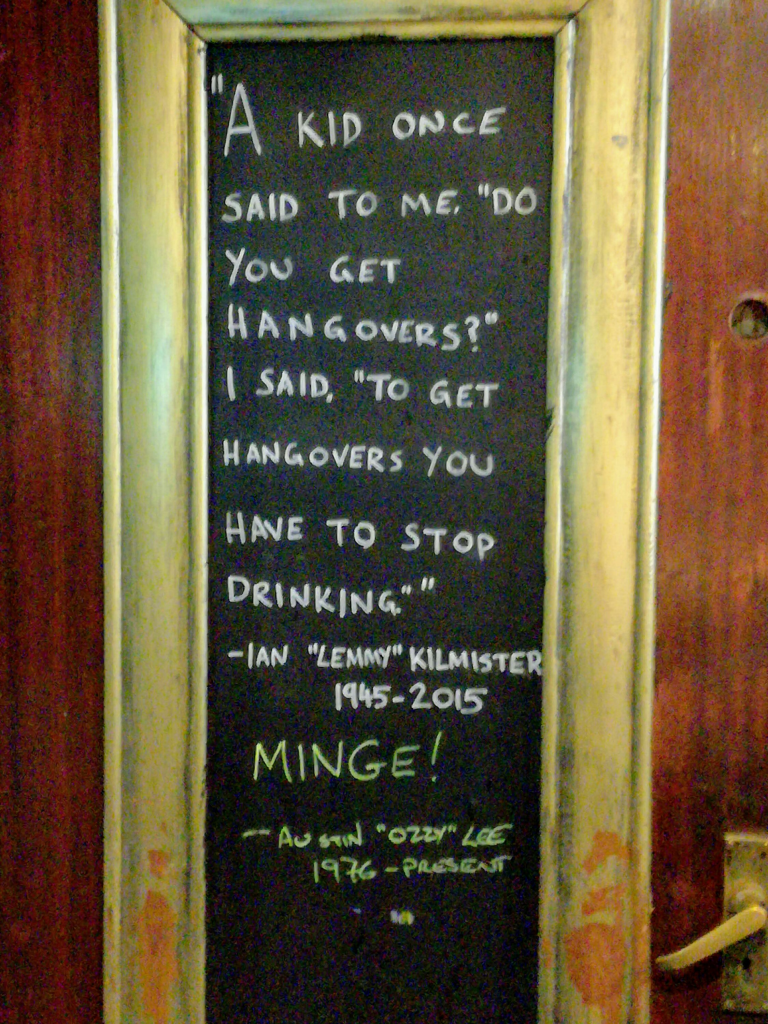 "A KID ONCE
SAID TO ME, "DO
YOU GET
HANGOVERS?"
I SAID, "TO GET
HANGOVERS YOU
HAVE TO STOP
DRINKING.""
-IAN "LEMMY" KILMISTER
1945-2015
MINGE!
- AUSTIN "OZZY" LEE
1976-PRESENT